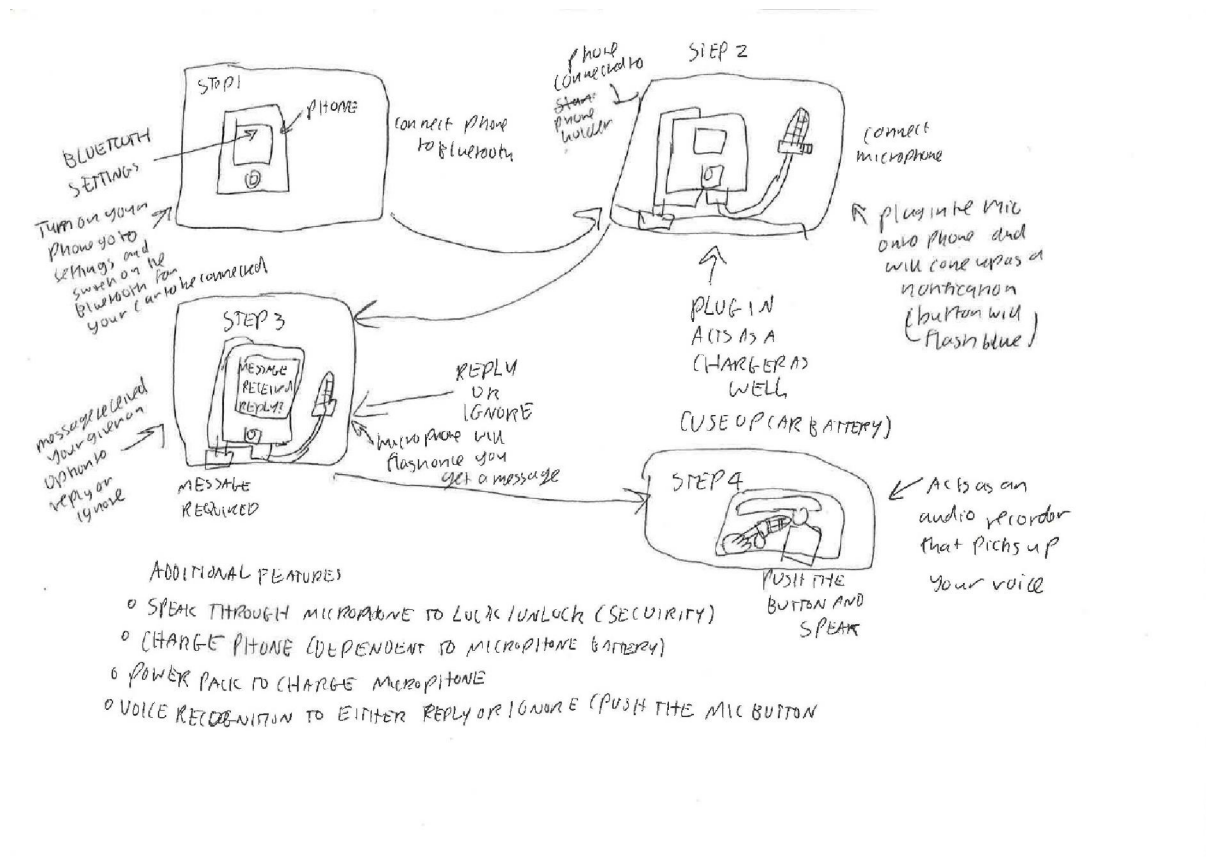 STEP 1
PHONE
BLUETOOTH
SETTINGS
connect phone
to Bluetooth
Turn on your
phone go to
settings and
switch on the
Bluetooth for
your car to be connected
STEP 2
phone
connected to
phone
holder
connect
microphone
plug in the mic
onto phone and
will come up as a
notification
(button will
flash blue)
PLUG IN
ACTS AS A
CHARGER AS
WELL
(USE UP CAR BATTERY)
STEP 3
MESSAGE
RECEIVED
REPLY?
REPLY
OR
IGNORE
microphone will
flash once you
get a message
message received
your given an
option to
reply or
ignore
MESSAGE
REQUIRED
STEP 4
Acts as an
audio recorder
that picks up
your voice
PUSH THE
BUTTON AND
SPEAK
ADDITIONAL FEATURES
o SPEAK THROUGH MICROPHONE TO LOCK/UNLOCK (SECUIRITY)
o CHARGE PHONE (DEPENDENT TO MICROPHONE BATTERY)
o POWER PACK TO CHARGE MICROPHONE
o VOICE RECOGNITION TO EITHER REPLY OR IGNORE (PUSH THE MIC BUTTON